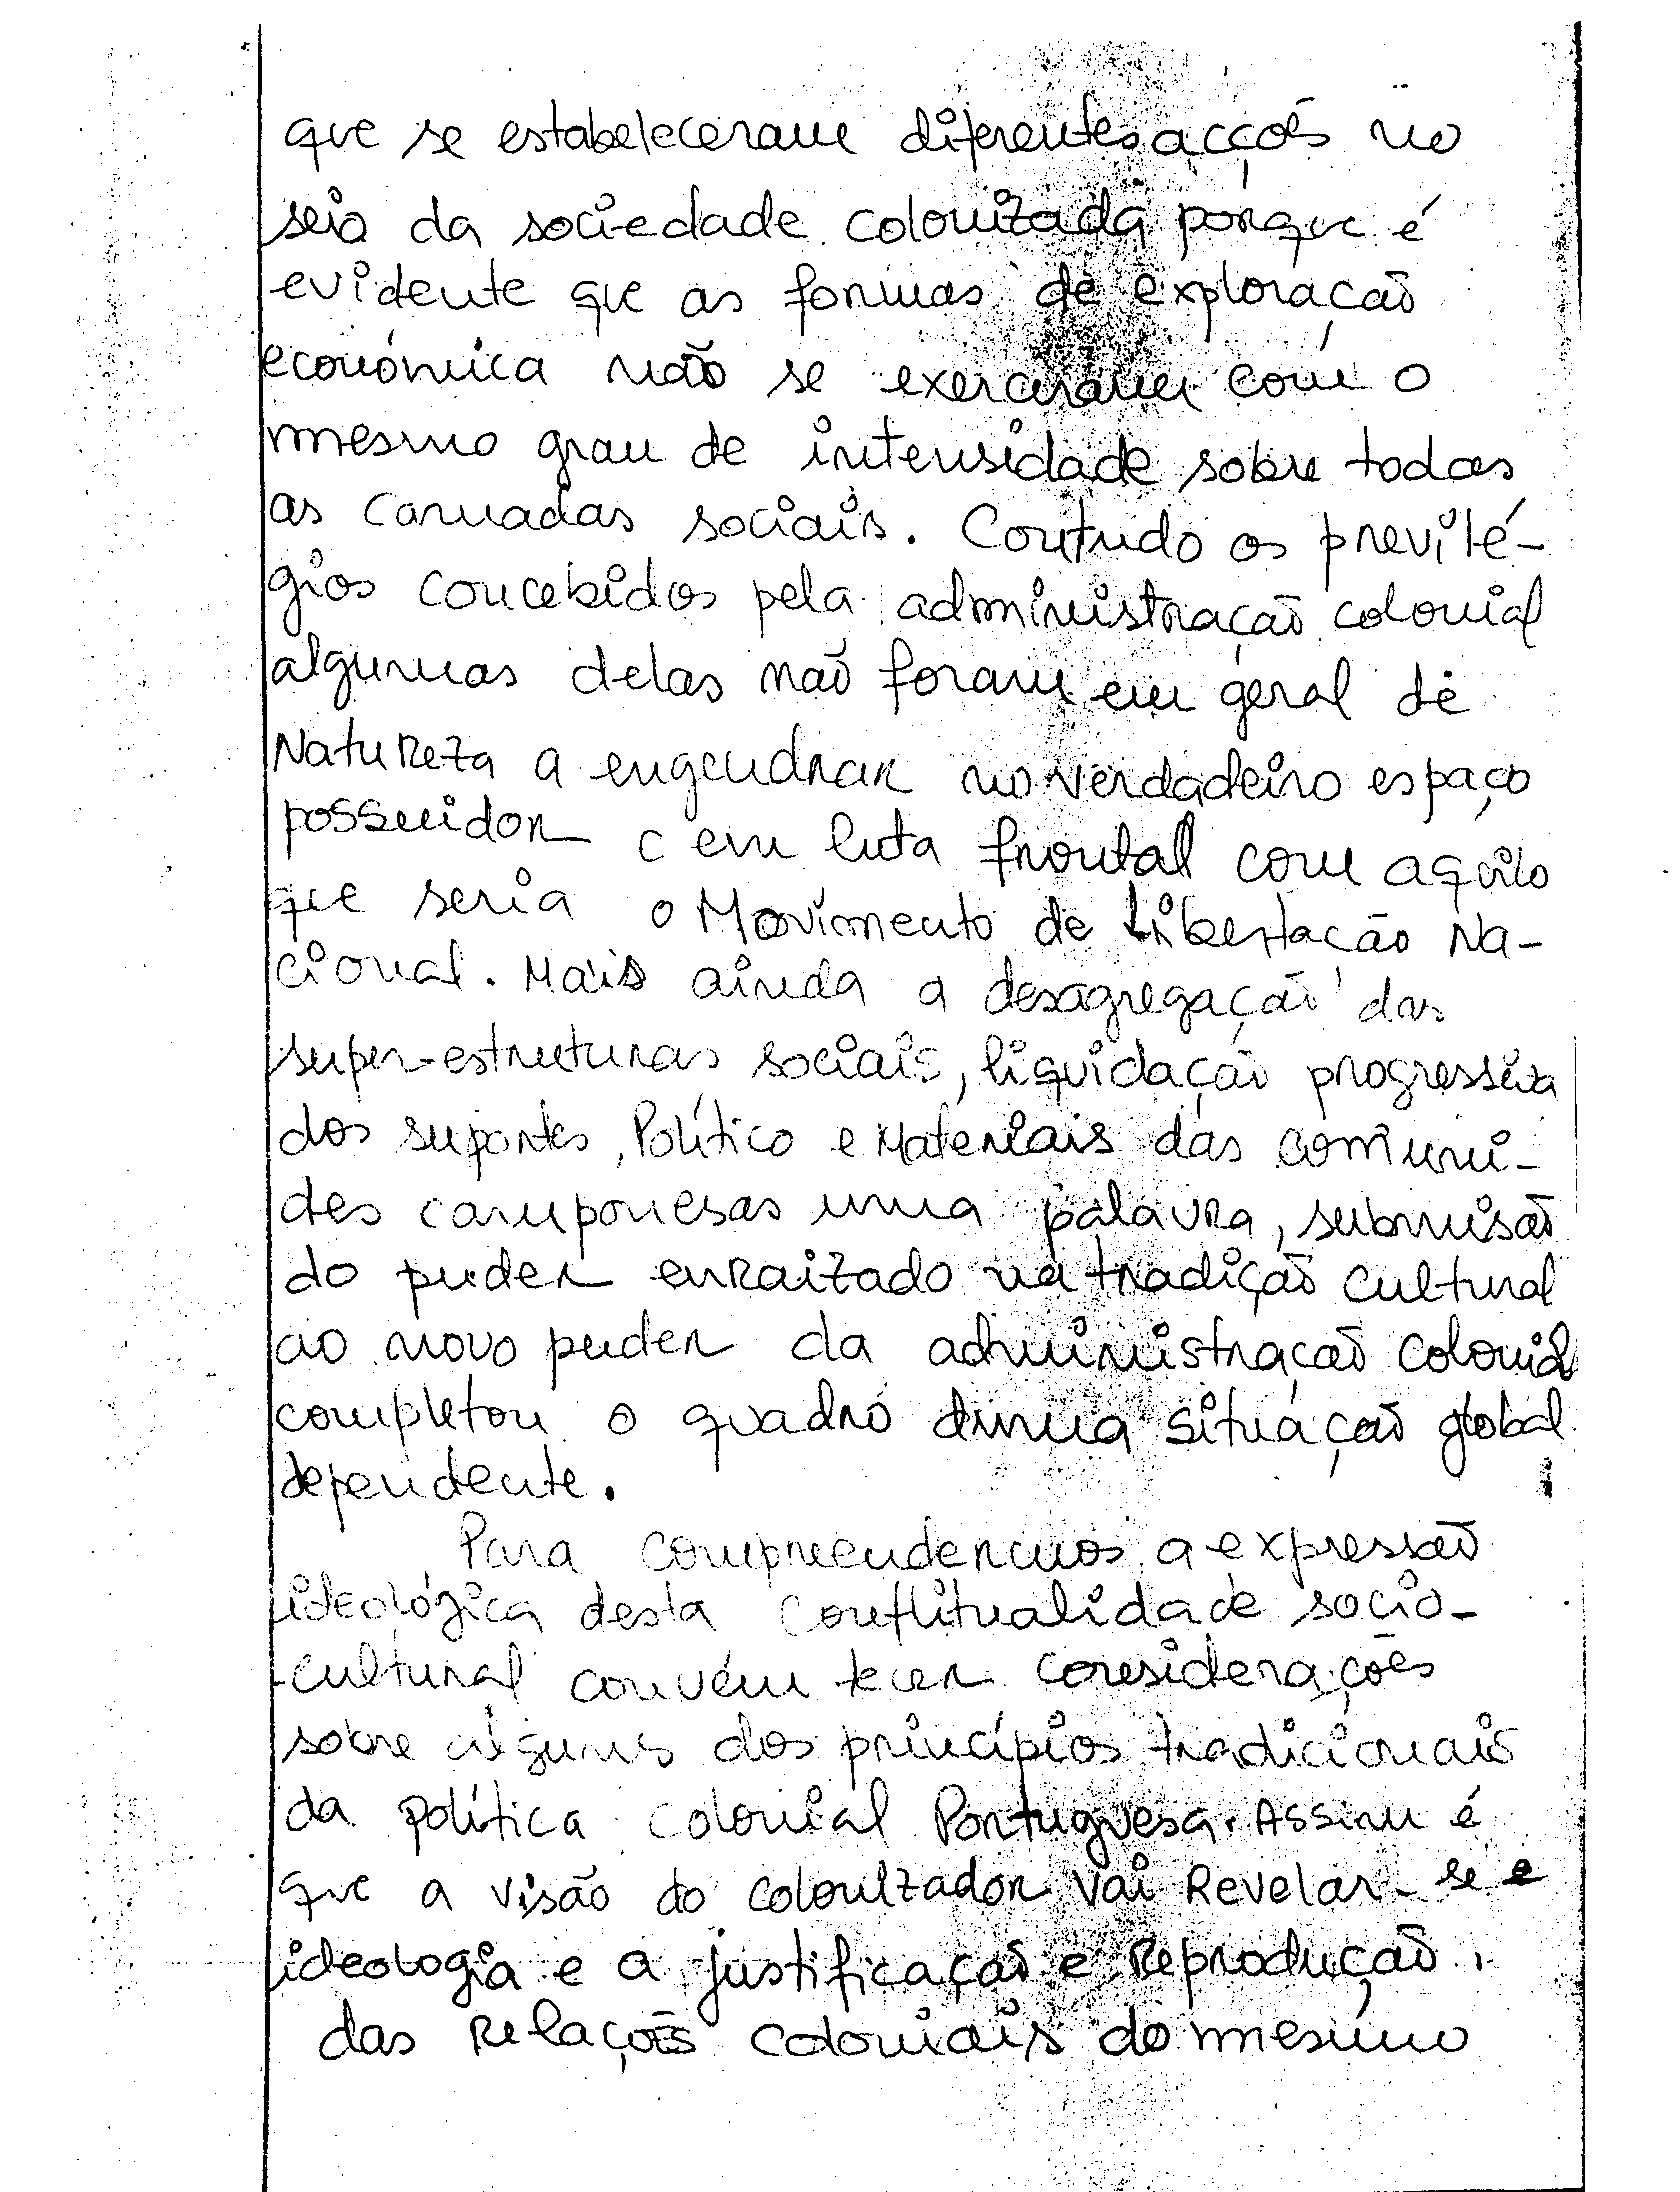 que se estabeleceram diferentes acções no
seio da sociedade colonizada porque é
evidente que as formas de exploração
económica não se exerceram com o
mesmo grau de intensidade sobre todas
as camadas sociais. Contudo os previlé-
gios concebidos pela administração colonial
algumas delas não foram em geral de
Natureza a engendrar no verdadeiro espaço
possuidor e em luta frontal com aquilo
que seria o Movimento de Libertação Na-
cional. Mais ainda a desagregação das
super-estruturas sociais, liquidação progressiva
dos suportes, Político e Materiais das comuni-
des camponesas uma palavra, submisão
do puder enraizado na tradição cultural
ao novo puder da administração colonial
completou o quadro duma situação global
dependente.
Para compreendermos a expressão
ideológica desta conflitualidade socio-
cultural convém tecer considerações
sobre alguns dos princípios tradicionais
da política colonial Portuguesa. Assim é
que a visão do colonizador vai Revelar-se e
ideologia e a justificação e Reprodução
das Relações coloniais do mesmo